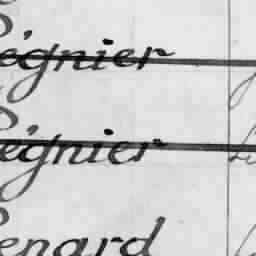 Régnier
Régnier
Renard